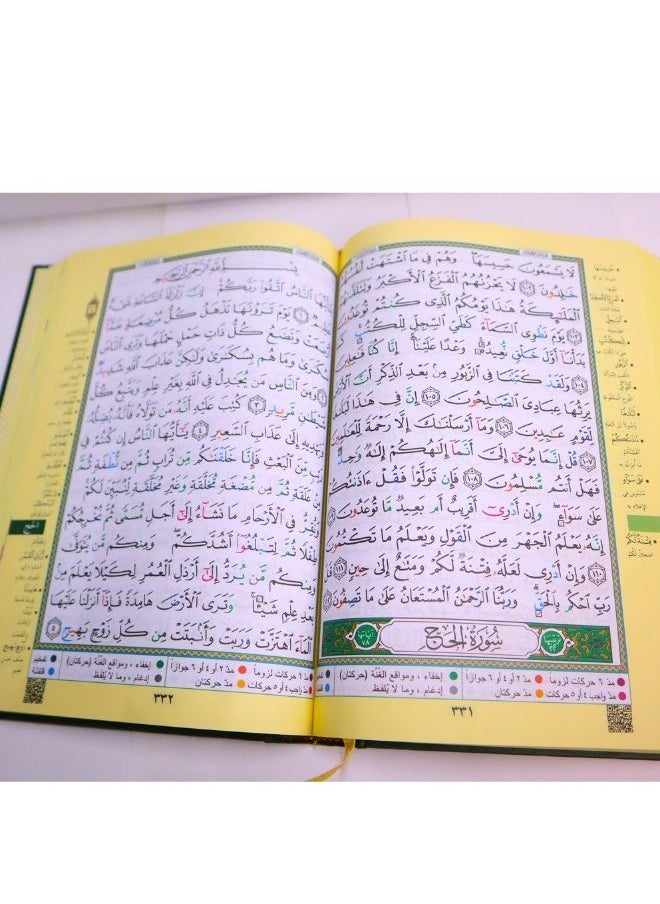 لَا يَسْمَعُونَ حَسِيسَهَا وَهُمْ فِي مَا ٱشْتَهَتْ
خَٰلِدُونَ ١٠٢ لَا يَحْزُنُهُمُ ٱلْفَزَعُ ٱلْأَكْبَرُ
ٱلْمَلَٰٓئِكَةُ هَٰذَا يَوْمُكُمُ ٱلَّذِي كُنتُمْ تُوعَدُونَ
١٠٣ يَوْمَ نَطْوِي ٱلسَّمَآءَ كَطَيِّ ٱلسِّجِلِّ لِلْكُتُبِ
بَدَأْنَآ أَوَّلَ خَلْقٍ نُّعِيدُهُۥ وَعْدًا عَلَيْنَآ إِنَّا كُنَّا فَٰعِلِينَ
١٠٤ وَلَقَدْ كَتَبْنَا فِي ٱلزَّبُورِ مِنۢ بَعْدِ ٱلذِّكْرِ أَنَّ ٱلْأَرْضَ
يَرِثُهَا عِبَادِيَ ٱلصَّٰلِحُونَ ١٠٥ إِنَّ فِي هَٰذَا لَبَلَٰغًا
لِّقَوْمٍ عَٰبِدِينَ ١٠٦ وَمَآ أَرْسَلْنَٰكَ إِلَّا رَحْمَةً لِّلْعَٰلَمِينَ
١٠٧ قُلْ إِنَّمَا يُوحَىٰٓ إِلَيَّ أَنَّمَآ إِلَٰهُكُمْ إِلَٰهٌ وَٰحِدٌ
فَهَلْ أَنتُم مُّسْلِمُونَ ١٠٨ فَإِن تَوَلَّوْا۟ فَقُلْ ءَاذَنتُكُمْ
عَلَىٰ سَوَآءٍ وَإِنْ أَدْرِيٓ أَقَرِيبٌ أَم بَعِيدٌ مَّا تُوعَدُونَ ١٠٩
إِنَّهُۥ يَعْلَمُ ٱلْجَهْرَ مِنَ ٱلْقَوْلِ وَيَعْلَمُ مَا تَكْتُمُونَ
١١٠ وَإِنْ أَدْرِي لَعَلَّهُۥ فِتْنَةٌ لَّكُمْ وَمَتَٰعٌ إِلَىٰ حِينٍ ١١١ قَٰلَ
رَبِّ ٱحْكُم بِٱلْحَقِّ وَرَبُّنَا ٱلرَّحْمَٰنُ ٱلْمُسْتَعَانُ عَلَىٰ مَا تَصِفُونَ ١١٢
ترتيبها ٢٢ سُورَةُ الحَجِّ آياتها ٧٨
مدّ ٦ حركات لزوماً مدّ ٢ أو ٤ أو ٦ جوازاً إخفاء، ومواقع الغنّة (حركتان)
مدّ واجب ٤ أو ٥ حركات مدّ حركتان إدغام، وما لا يُلفظ
٣٣١
ٱللَّهِ ٱلرَّحْمَٰنِ ٱلرَّحِيمِ
يَٰٓأَيُّهَا ٱلنَّاسُ ٱتَّقُوا۟ رَبَّكُمْ إِنَّ زَلْزَلَةَ ٱلسَّاعَةِ شَيْءٌ
١ يَوْمَ تَرَوْنَهَا تَذْهَلُ كُلُّ مُرْضِعَةٍ عَمَّآ
أَرْضَعَتْ وَتَضَعُ كُلُّ ذَاتِ حَمْلٍ حَمْلَهَا وَتَرَى ٱلنَّاسَ
سُكَٰرَىٰ وَمَا هُم بِسُكَٰرَىٰ وَلَٰكِنَّ عَذَابَ ٱللَّهِ شَدِيدٌ
٢ وَمِنَ ٱلنَّاسِ مَن يُجَٰدِلُ فِي ٱللَّهِ بِغَيْرِ عِلْمٍ وَيَتَّبِعُ كُلَّ
شَيْطَٰنٍ مَّرِيدٍ ٣ كُتِبَ عَلَيْهِ أَنَّهُۥ مَن تَوَلَّاهُ فَأَنَّهُۥ يُضِلُّهُۥ
وَيَهْدِيهِ إِلَىٰ عَذَابِ ٱلسَّعِيرِ ٤ يَٰٓأَيُّهَا ٱلنَّاسُ إِن كُنتُمْ فِي
رَيْبٍ مِّنَ ٱلْبَعْثِ فَإِنَّا خَلَقْنَٰكُم مِّن تُرَابٍ ثُمَّ مِن نُّطْفَةٍ ثُمَّ
مِنْ عَلَقَةٍ ثُمَّ مِن مُّضْغَةٍ مُّخَلَّقَةٍ وَغَيْرِ مُخَلَّقَةٍ لِّنُبَيِّنَ لَكُمْ
وَنُقِرُّ فِي ٱلْأَرْحَامِ مَا نَشَآءُ إِلَىٰٓ أَجَلٍ مُّسَمًّى ثُمَّ نُخْرِجُكُمْ
طِفْلًا ثُمَّ لِتَبْلُغُوٓا۟ أَشُدَّكُمْ وَمِنكُم مَّن يُتَوَفَّىٰ
وَمِنكُم مَّن يُرَدُّ إِلَىٰٓ أَرْذَلِ ٱلْعُمُرِ لِكَيْلَا يَعْلَمَ مِنۢ
بَعْدِ عِلْمٍ شَيْـًٔا وَتَرَى ٱلْأَرْضَ هَامِدَةً فَإِذَآ أَنزَلْنَا عَلَيْهَا
ٱلْمَآءَ ٱهْتَزَّتْ وَرَبَتْ وَأَنۢبَتَتْ مِن كُلِّ زَوْجٍ بَهِيجٍ ٥
الحج
مدّ ٦ حركات لزوماً مدّ ٢ أو ٤ أو ٦ جوازاً إخفاء، ومواقع الغنّة (حركتان) تفخيم
مدّ واجب ٤ أو ٥ حركات مدّ حركتان إدغام، وما لا يُلفظ قلقلة
٣٣٢